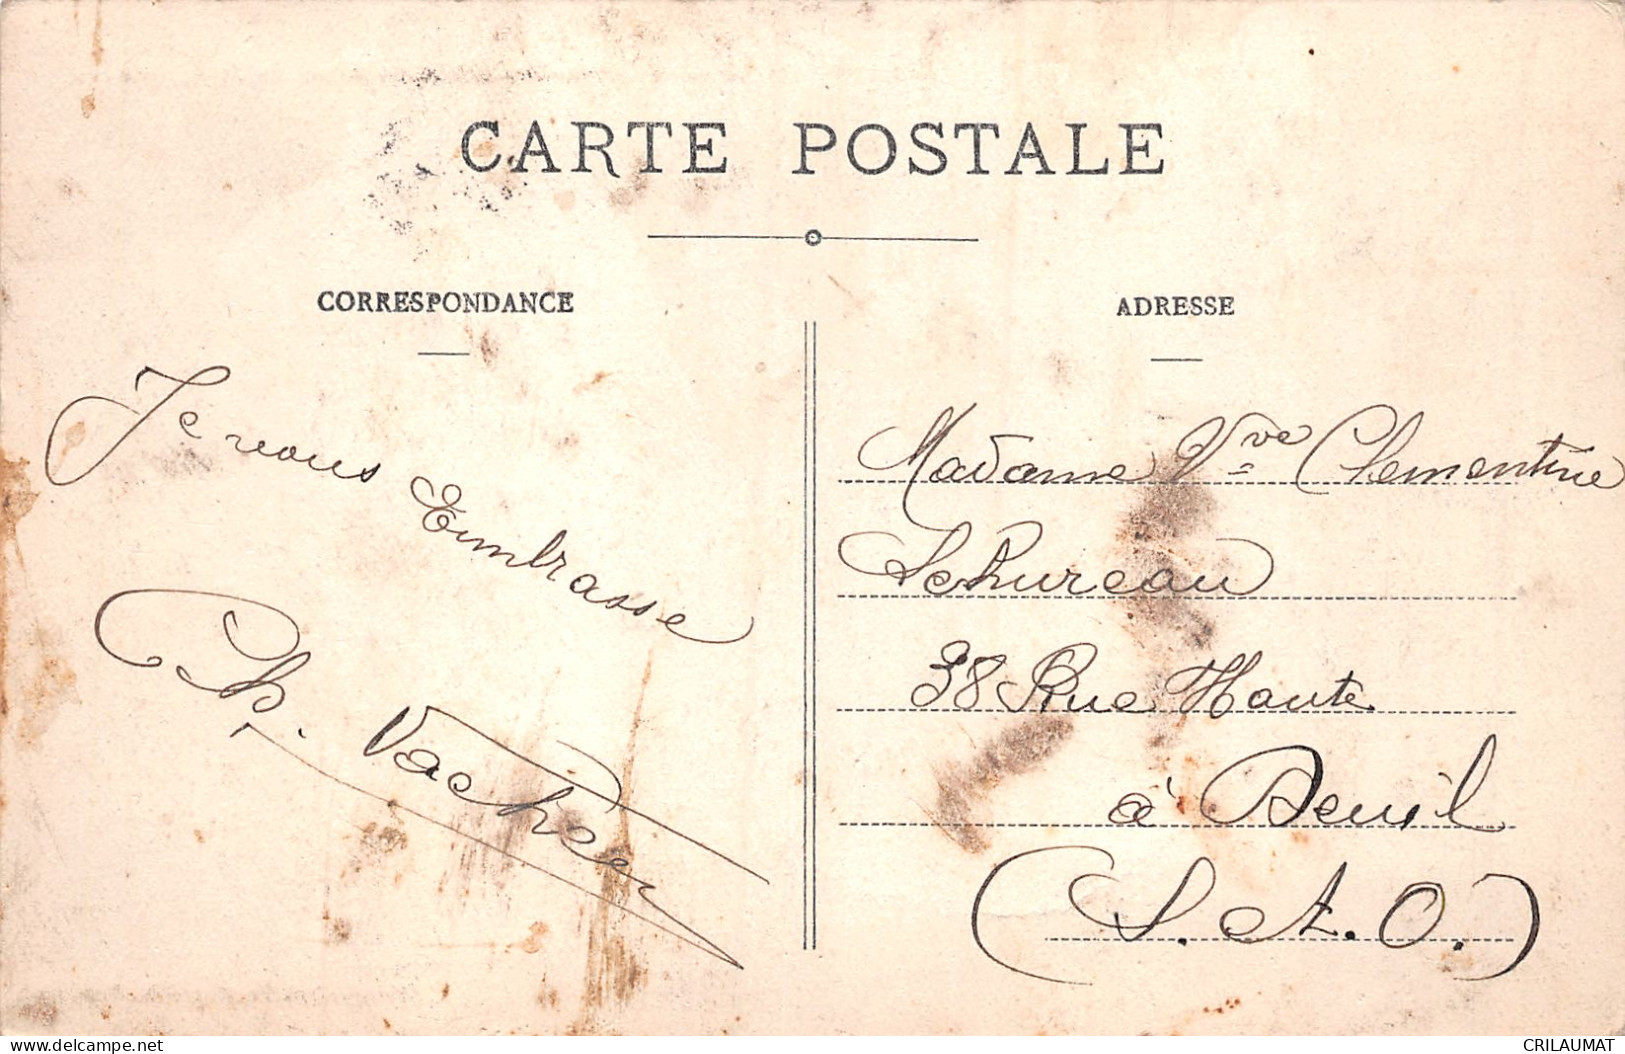 CARTE POSTALE
CORRESPONDANCE
Je vous Embrasse
Ch. Vacher
ADRESSE
Madame Vve Clementine
Lehureau
38 Rue Haute
à Deuil
(S. et. O.)
www.delcampe.net
CRILAUMAT